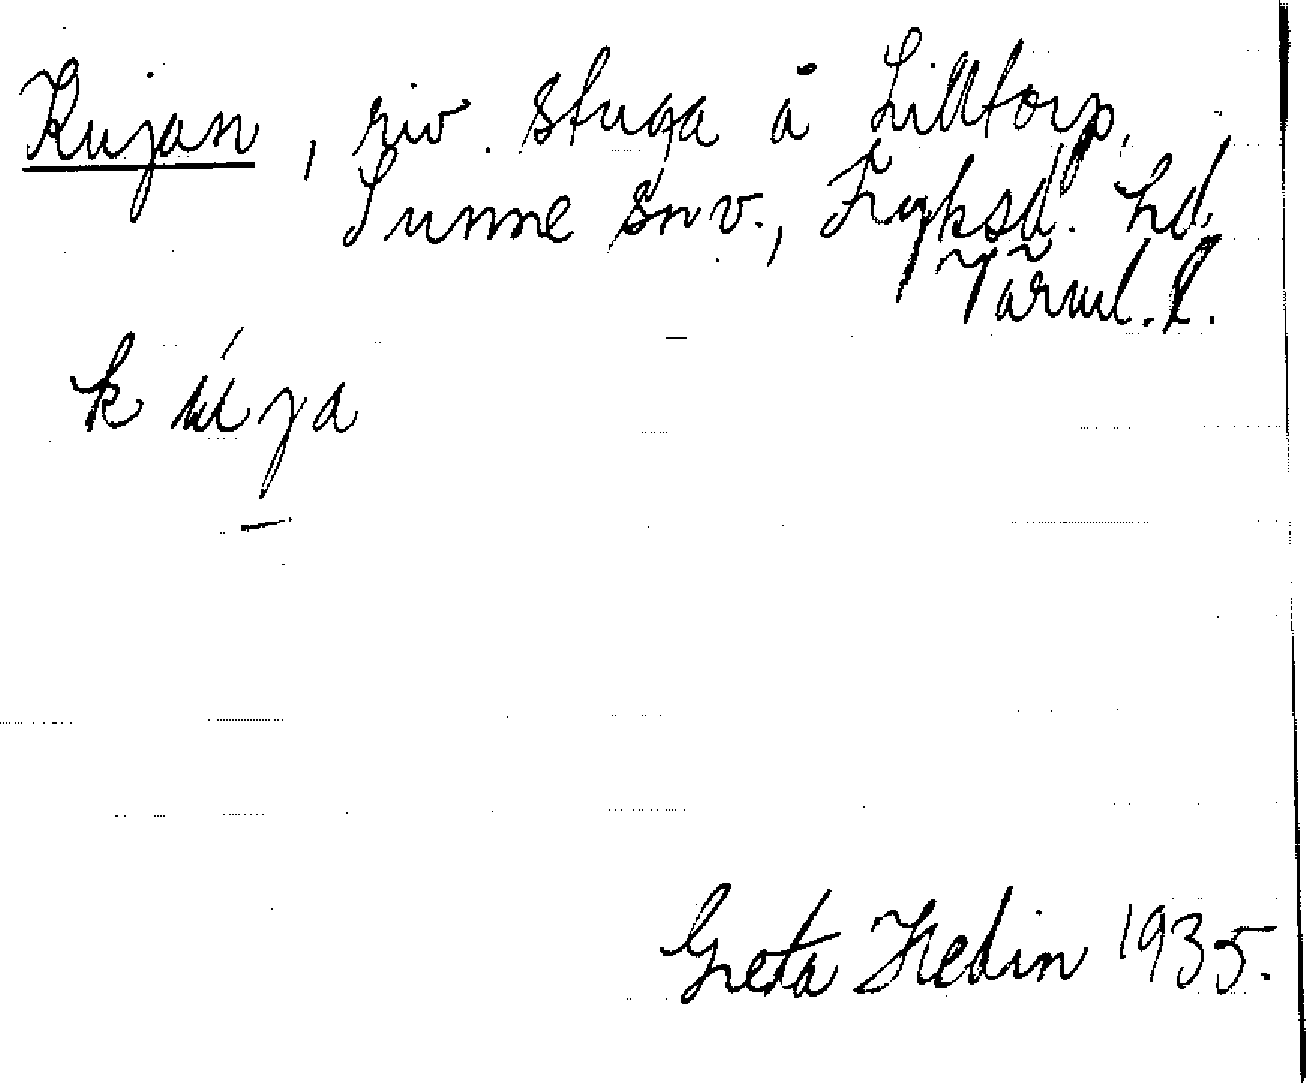 Kujan, riv. stuga å Lilltorp,
Sunne snv., Fryksd. hd,
Värml. l.
kúja
Greta Hedin 1935.